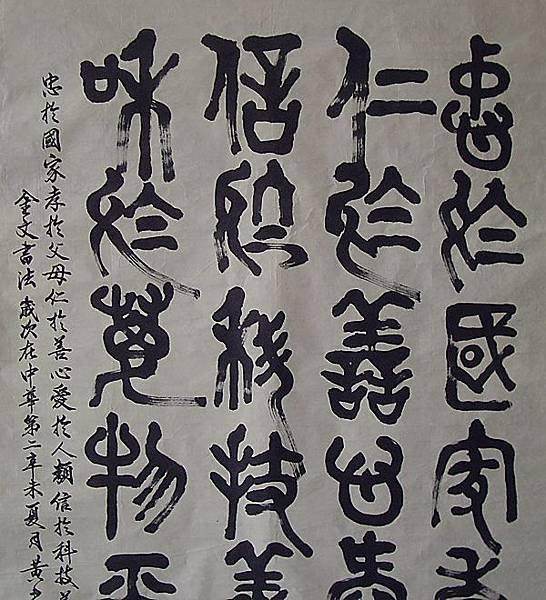 忠於國家孝
仁於善心愛
信於科技義
和於萬物平
忠於國家孝於父母仁於善心愛於人類信於科技義
金文書法歲次在中華第二辛未夏月黃